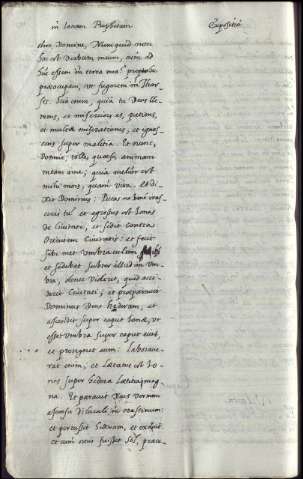 in Ionam Prophetam Expositio
Domine, Nunquid non
hoc est Verbum meum, cum ad
huc essem in terra mea?
ut fugerem in Thar
sis. Scio enim, quia tu Deus Cle
mens, et misericors es, patiens,
et multæ miserationis, et ignos
cens super malitia. Et nunc,
Domine, tolle, quæso, animam
meam a me; quia melior est
mihi mors, quam vita. Et di
xit Dominus: Putas ne bene iras
ceris tu? et egressus est Ionas
de Civitate, et sedit contra
Orientem Civitatis: et fecit
sibi met umbraculum ibi
et sedebat subter illud in um
bra, donec videret, quid acci
deret Civitati; et præparavit
Dominus Deus hederam, et
ascendit super caput Ionæ, ut
esset umbra super caput eius,
et protegeret eum: laborave
rat enim, et Lætatus est Io
nas super hedera Lætitia mag
na. Et paravit Deus vermem
ascensu diluculi in crastinum:
et percussit hederam, et exaruit.
et cum ortus fuisset Sol, præc